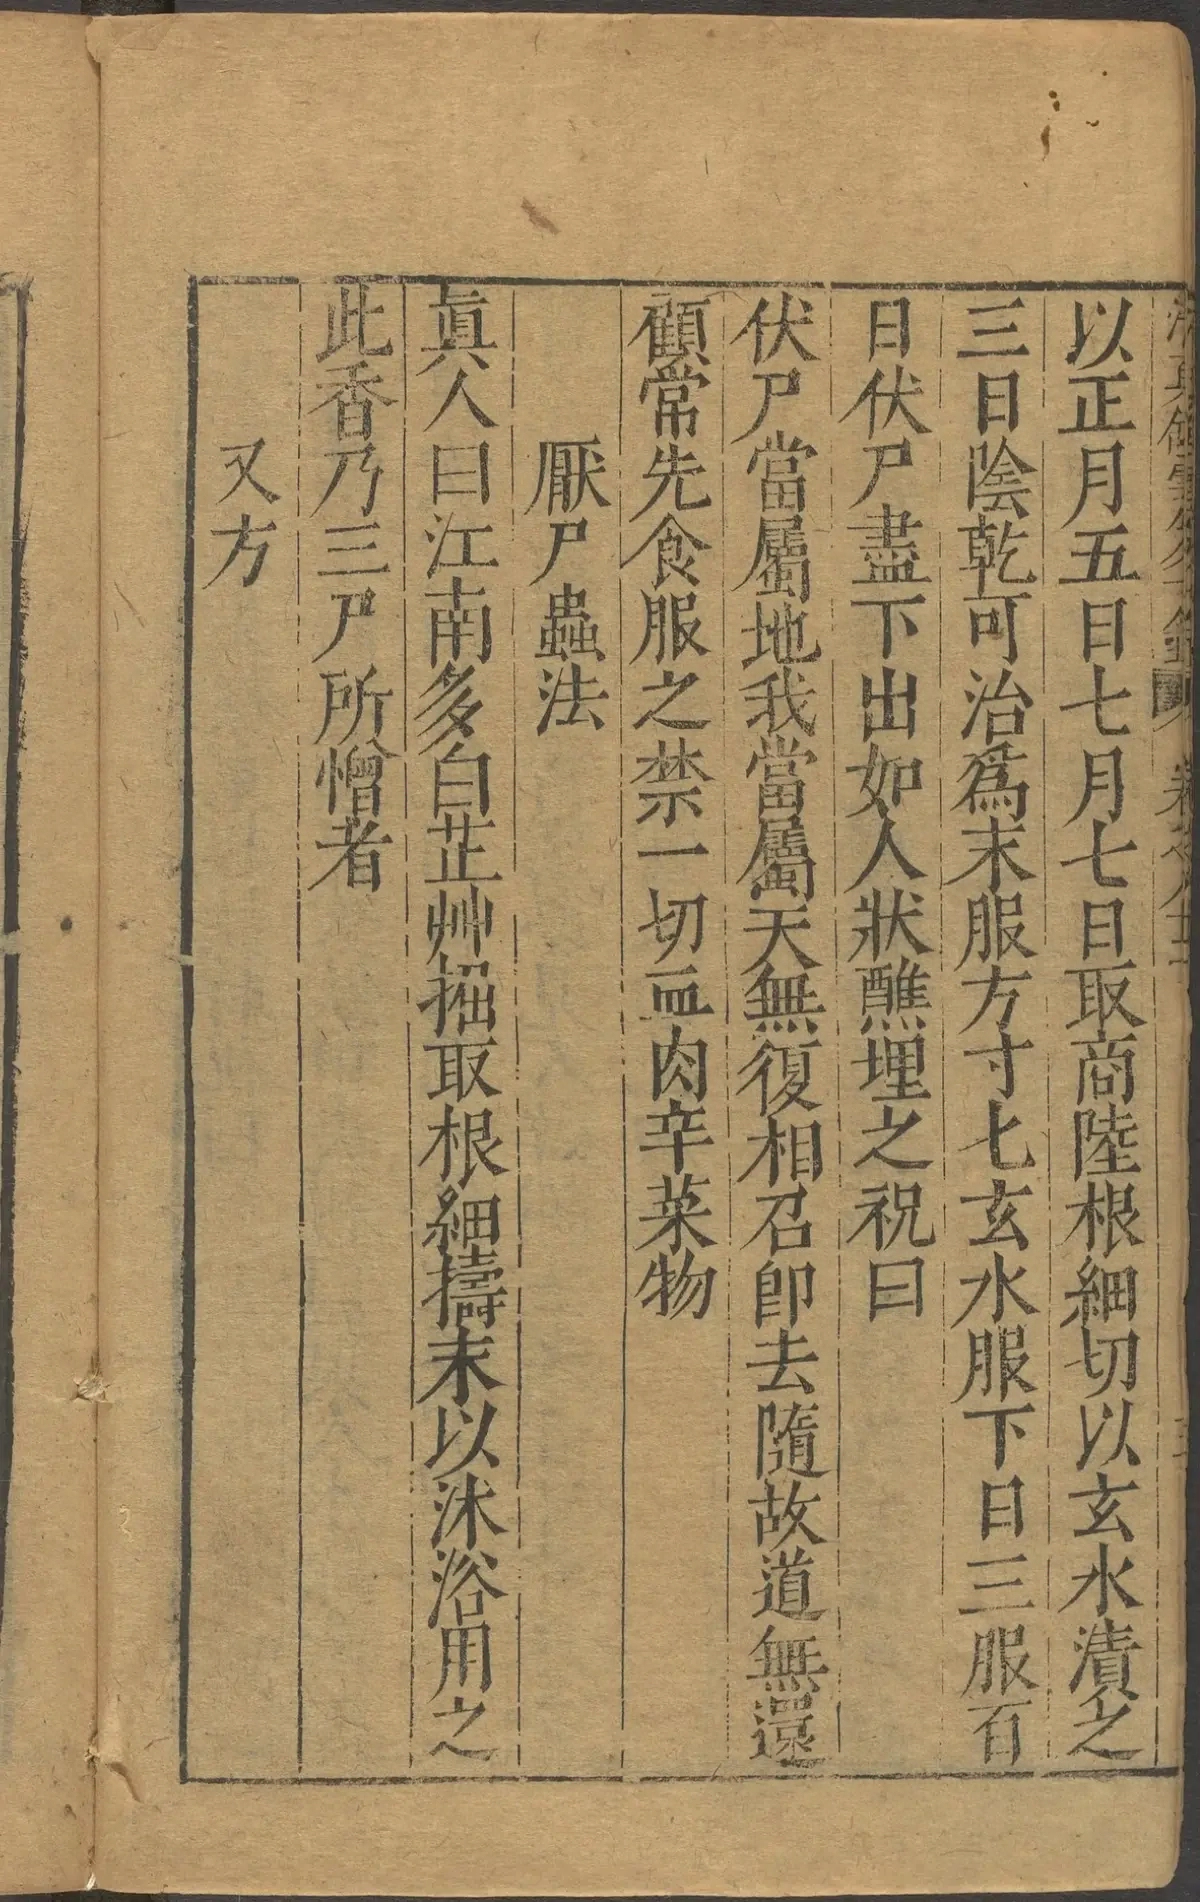 以正月五日七月七日取商陸根細切以玄水漬之
三日陰乾可治爲末服方寸匕玄水服下日三服百
日伏尸盡下出如人狀醮埋之祝曰
伏尸當屬地我當屬天無復相召卽去隨故道無還
顧常先食服之禁一切血肉辛菜物
厭尸蟲法
眞人曰江南多白芷艸掘取根細擣末以沐浴用之
此香乃三尸所憎者
又方